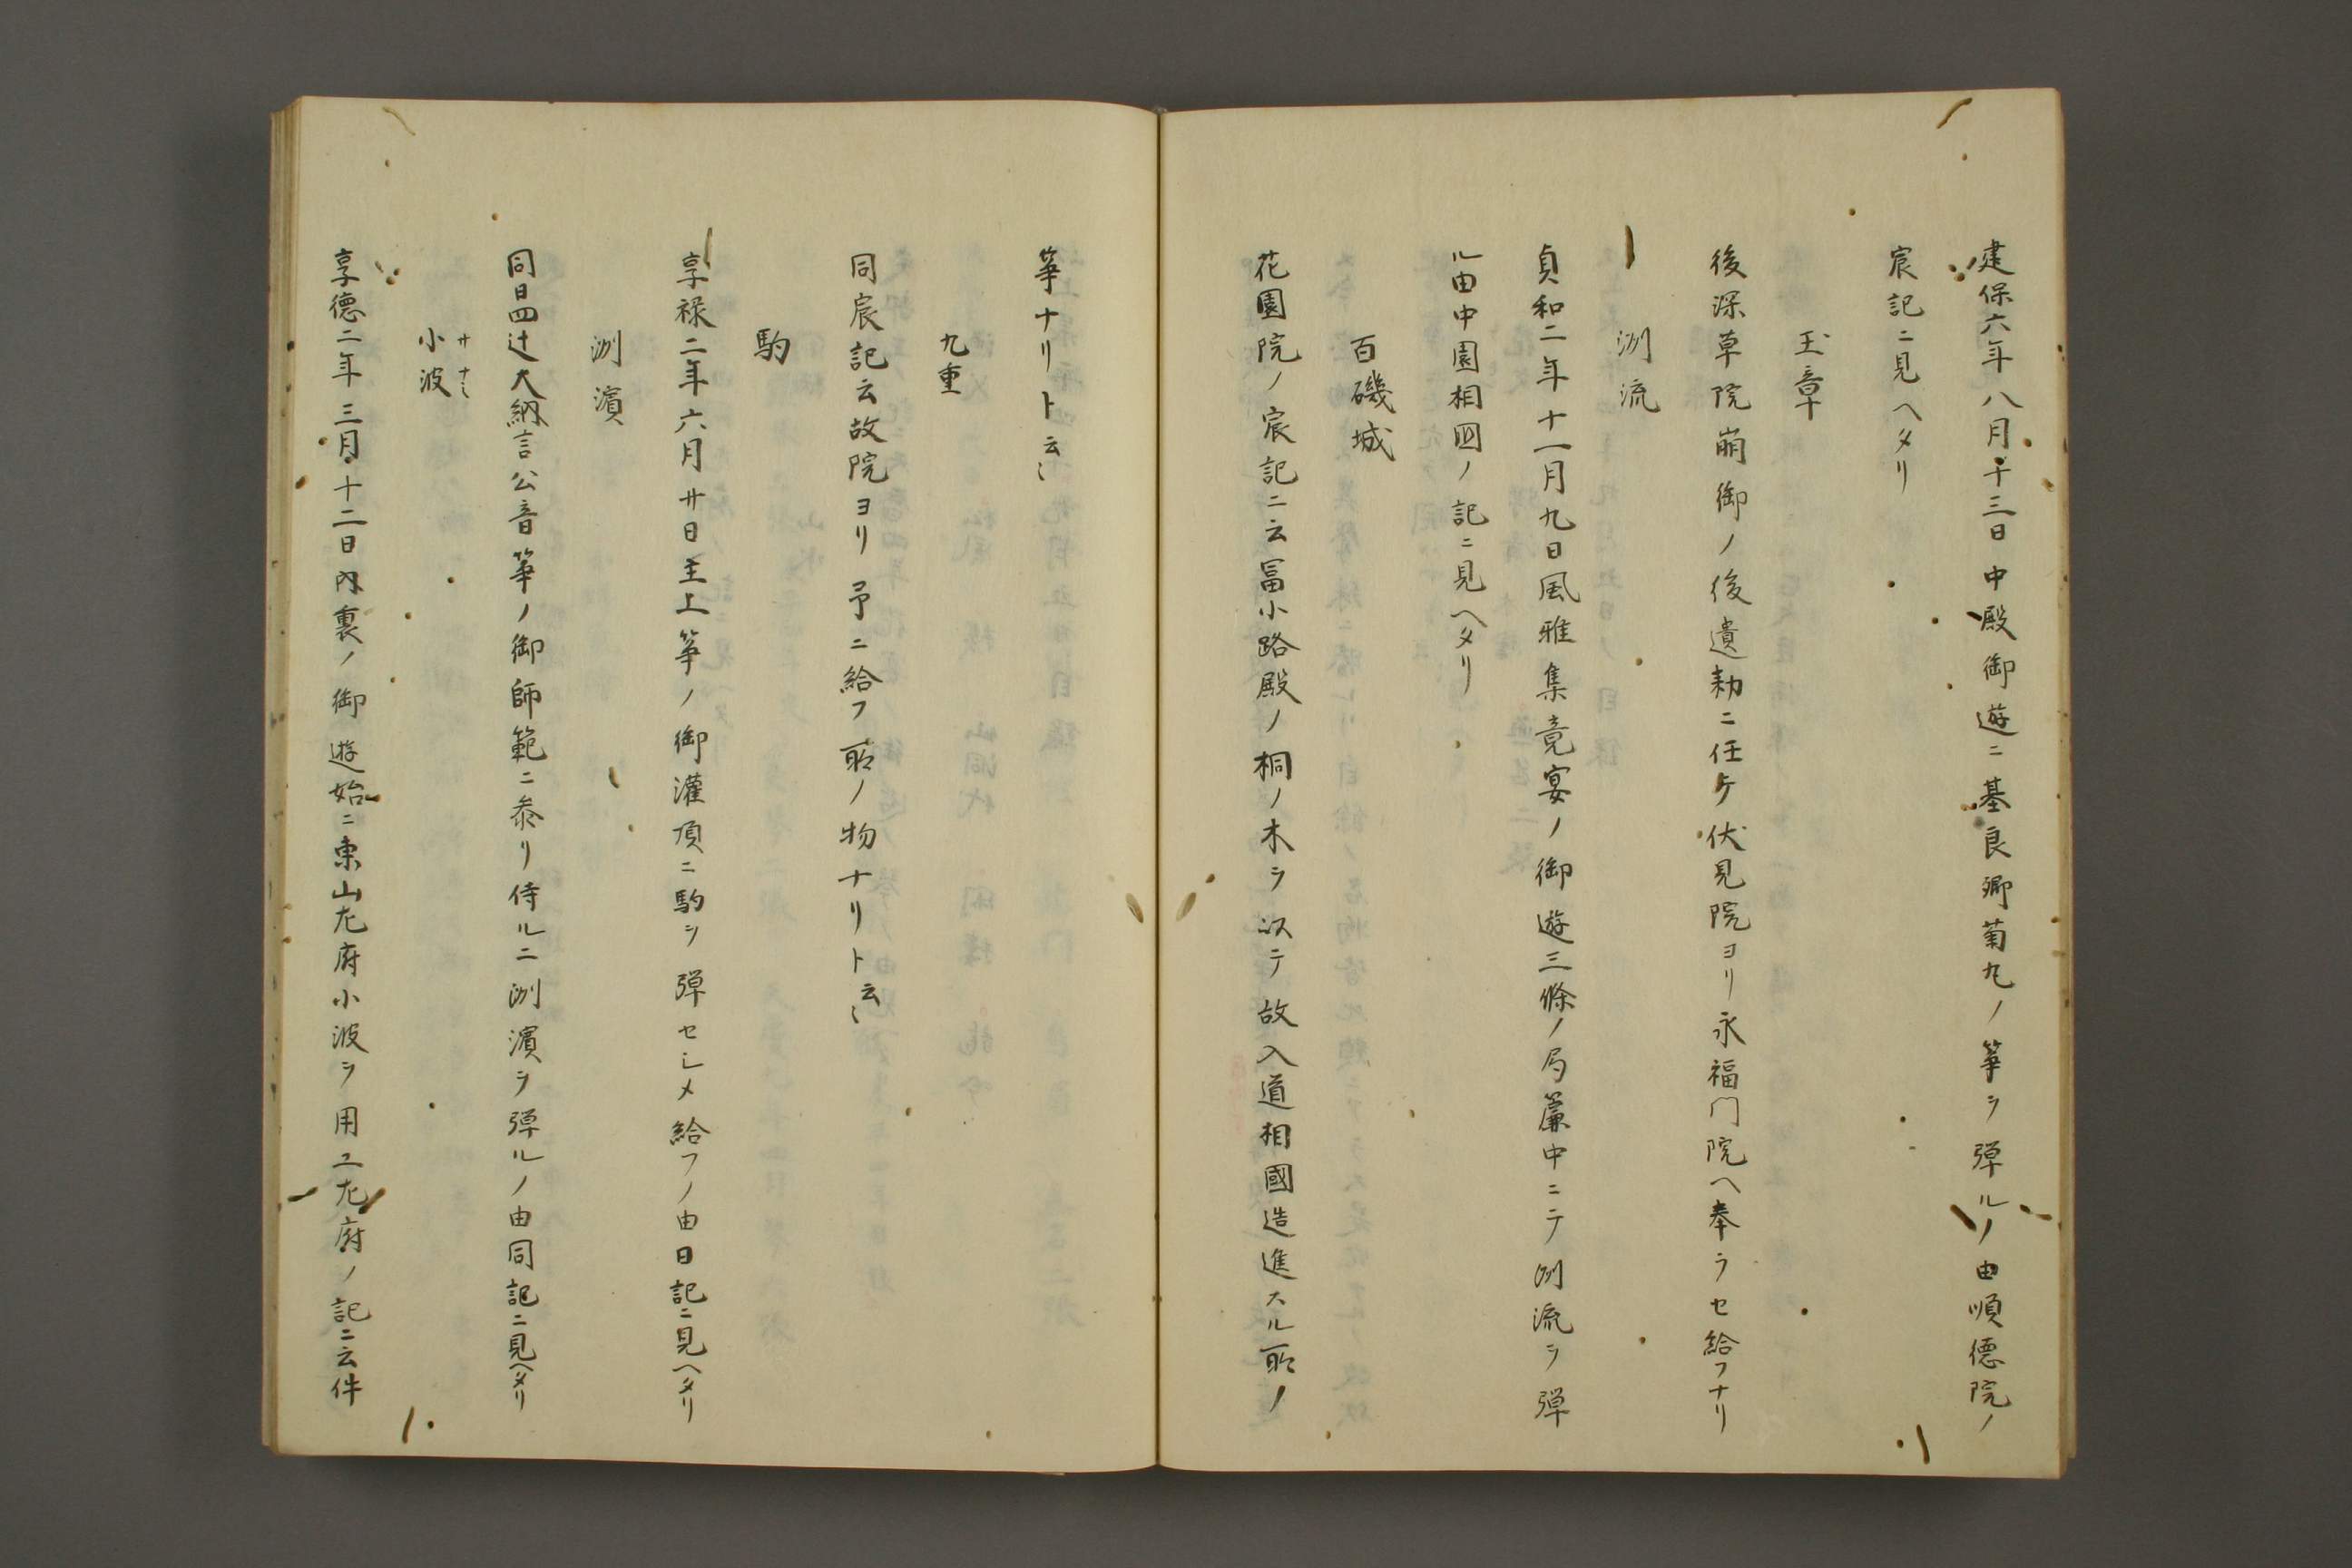 建保六年八月十三日中殿御遊ニ基良卿菊丸ノ箏ヲ弾ルノ由順徳院ノ
宸記ニ見ヘタリ
玉章
後深草院崩御ノ後遺勅ニ任ケ伏見院ヨリ永福門院ヘ奉ラセ給フナリ
洌流
貞和二年十一月九日風雅集竟宴ノ御遊三條ノ局簾中ニテ洌流ヲ弾
ル由中園相国ノ記ニ見ヘタリ
百磯城
花園院ノ宸記ニ云冨小路殿ノ桐ノ木ヲ以テ故入道相國造進スル所ノ
箏ナリト云〻
九重
同宸記云故院ヨリ予ニ給フ所ノ物ナリト云〻
駒
享禄二年六月廿日主上箏ノ御灌頂ニ駒ヲ弾セシメ給フノ由日記ニ見ヘタリ
洲濱
同日四辻大納言公音箏ノ御師範ニ参リ侍ルニ洲濱ヲ弾ルノ由同記ニ見ヘタリ
小波
サヽナミ
享徳二年三月十二日内裏ノ御遊始ニ東山左府小波ヲ用ユ左府ノ記ニ云件